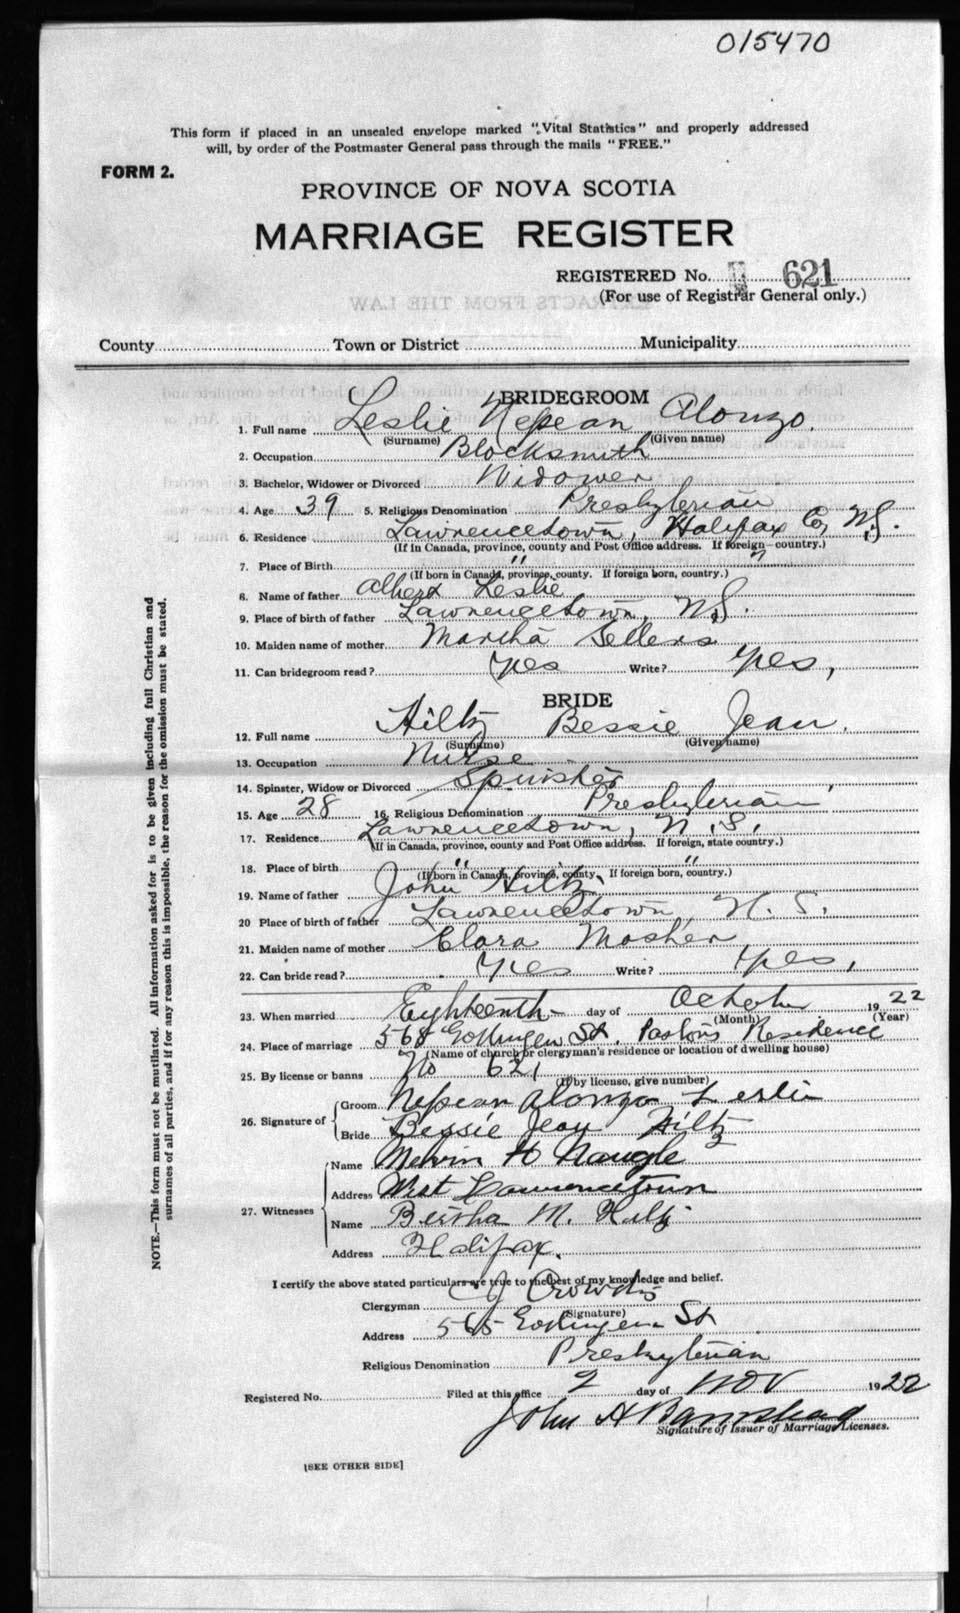 015470
This form if placed in an unsealed envelope marked "Vital Statistics" and properly addressed
will, by order of the Postmaster General pass through the mails "FREE."
FORM 2.
PROVINCE OF NOVA SCOTIA
MARRIAGE REGISTER
REGISTERED No. 621
(For use of Registrar General only.)
County Town or District Municipality
BRIDEGROOM
1. Full name Leslie Nepean Alonzo.
(Surname) (Given name)
2. Occupation Blacksmith
3. Bachelor, Widower or Divorced Widower
4. Age 39 5. Religious Denomination Presbyterian
6. Residence Lawrencetown, Halifax Co, N.S.
(If in Canada, province, county and Post Office address. If foreign country.)
7. Place of Birth " "
(If born in Canada, province, county. If foreign born, country.)
8. Name of father Albert Leslie
9. Place of birth of father Lawrencetown, N.S.
10. Maiden name of mother Martha Sellers
11. Can bridegroom read? Yes Write? Yes,
BRIDE
12. Full name Hiltz Bessie Jean.
(Surname) (Given name)
13. Occupation Nurse
14. Spinster, Widow or Divorced Spinster
15. Age 28 16. Religious Denomination Presbyterian
17. Residence Lawrencetown, N.S.
(If in Canada, province, county and Post Office address. If foreign, state country.)
18. Place of birth " "
(If born in Canada, province, county. If foreign born, country.)
19. Name of father John Hiltz
20 Place of birth of father Lawrencetown, N.S.
21. Maiden name of mother Clara Mosher
22. Can bride read? Yes Write? Yes,
23. When married Eighteenth day of October 1922
(Month) (Year)
24. Place of marriage 568 Gottingen St. Pastor's Residence
(Name of church or clergyman's residence or location of dwelling house)
25. By license or banns No 621
(If by license, give number)
26. Signature of Groom Nepean Alonzo Leslie
Bride Bessie Jean Hiltz
27. Witnesses Name Melvin H Naugle
Address West Lawrencetown
Name Bertha M. Hiltz
Address Halifax.
I certify the above stated particulars are true to the best of my knowledge and belief.
Clergyman J Crowdis
(Signature)
Address 565 Gottingen St
Religious Denomination Presbyterian
Registered No. Filed at this office 2 day of NOV 1922
John A Barnstead
Signature of Issuer of Marriage Licenses.
[SEE OTHER SIDE]
NOTE.—This form must not be mutilated. All information asked for is to be given including full Christian and
surnames of all parties, and if for any reason this is impossible, the reason for the omission must be stated.